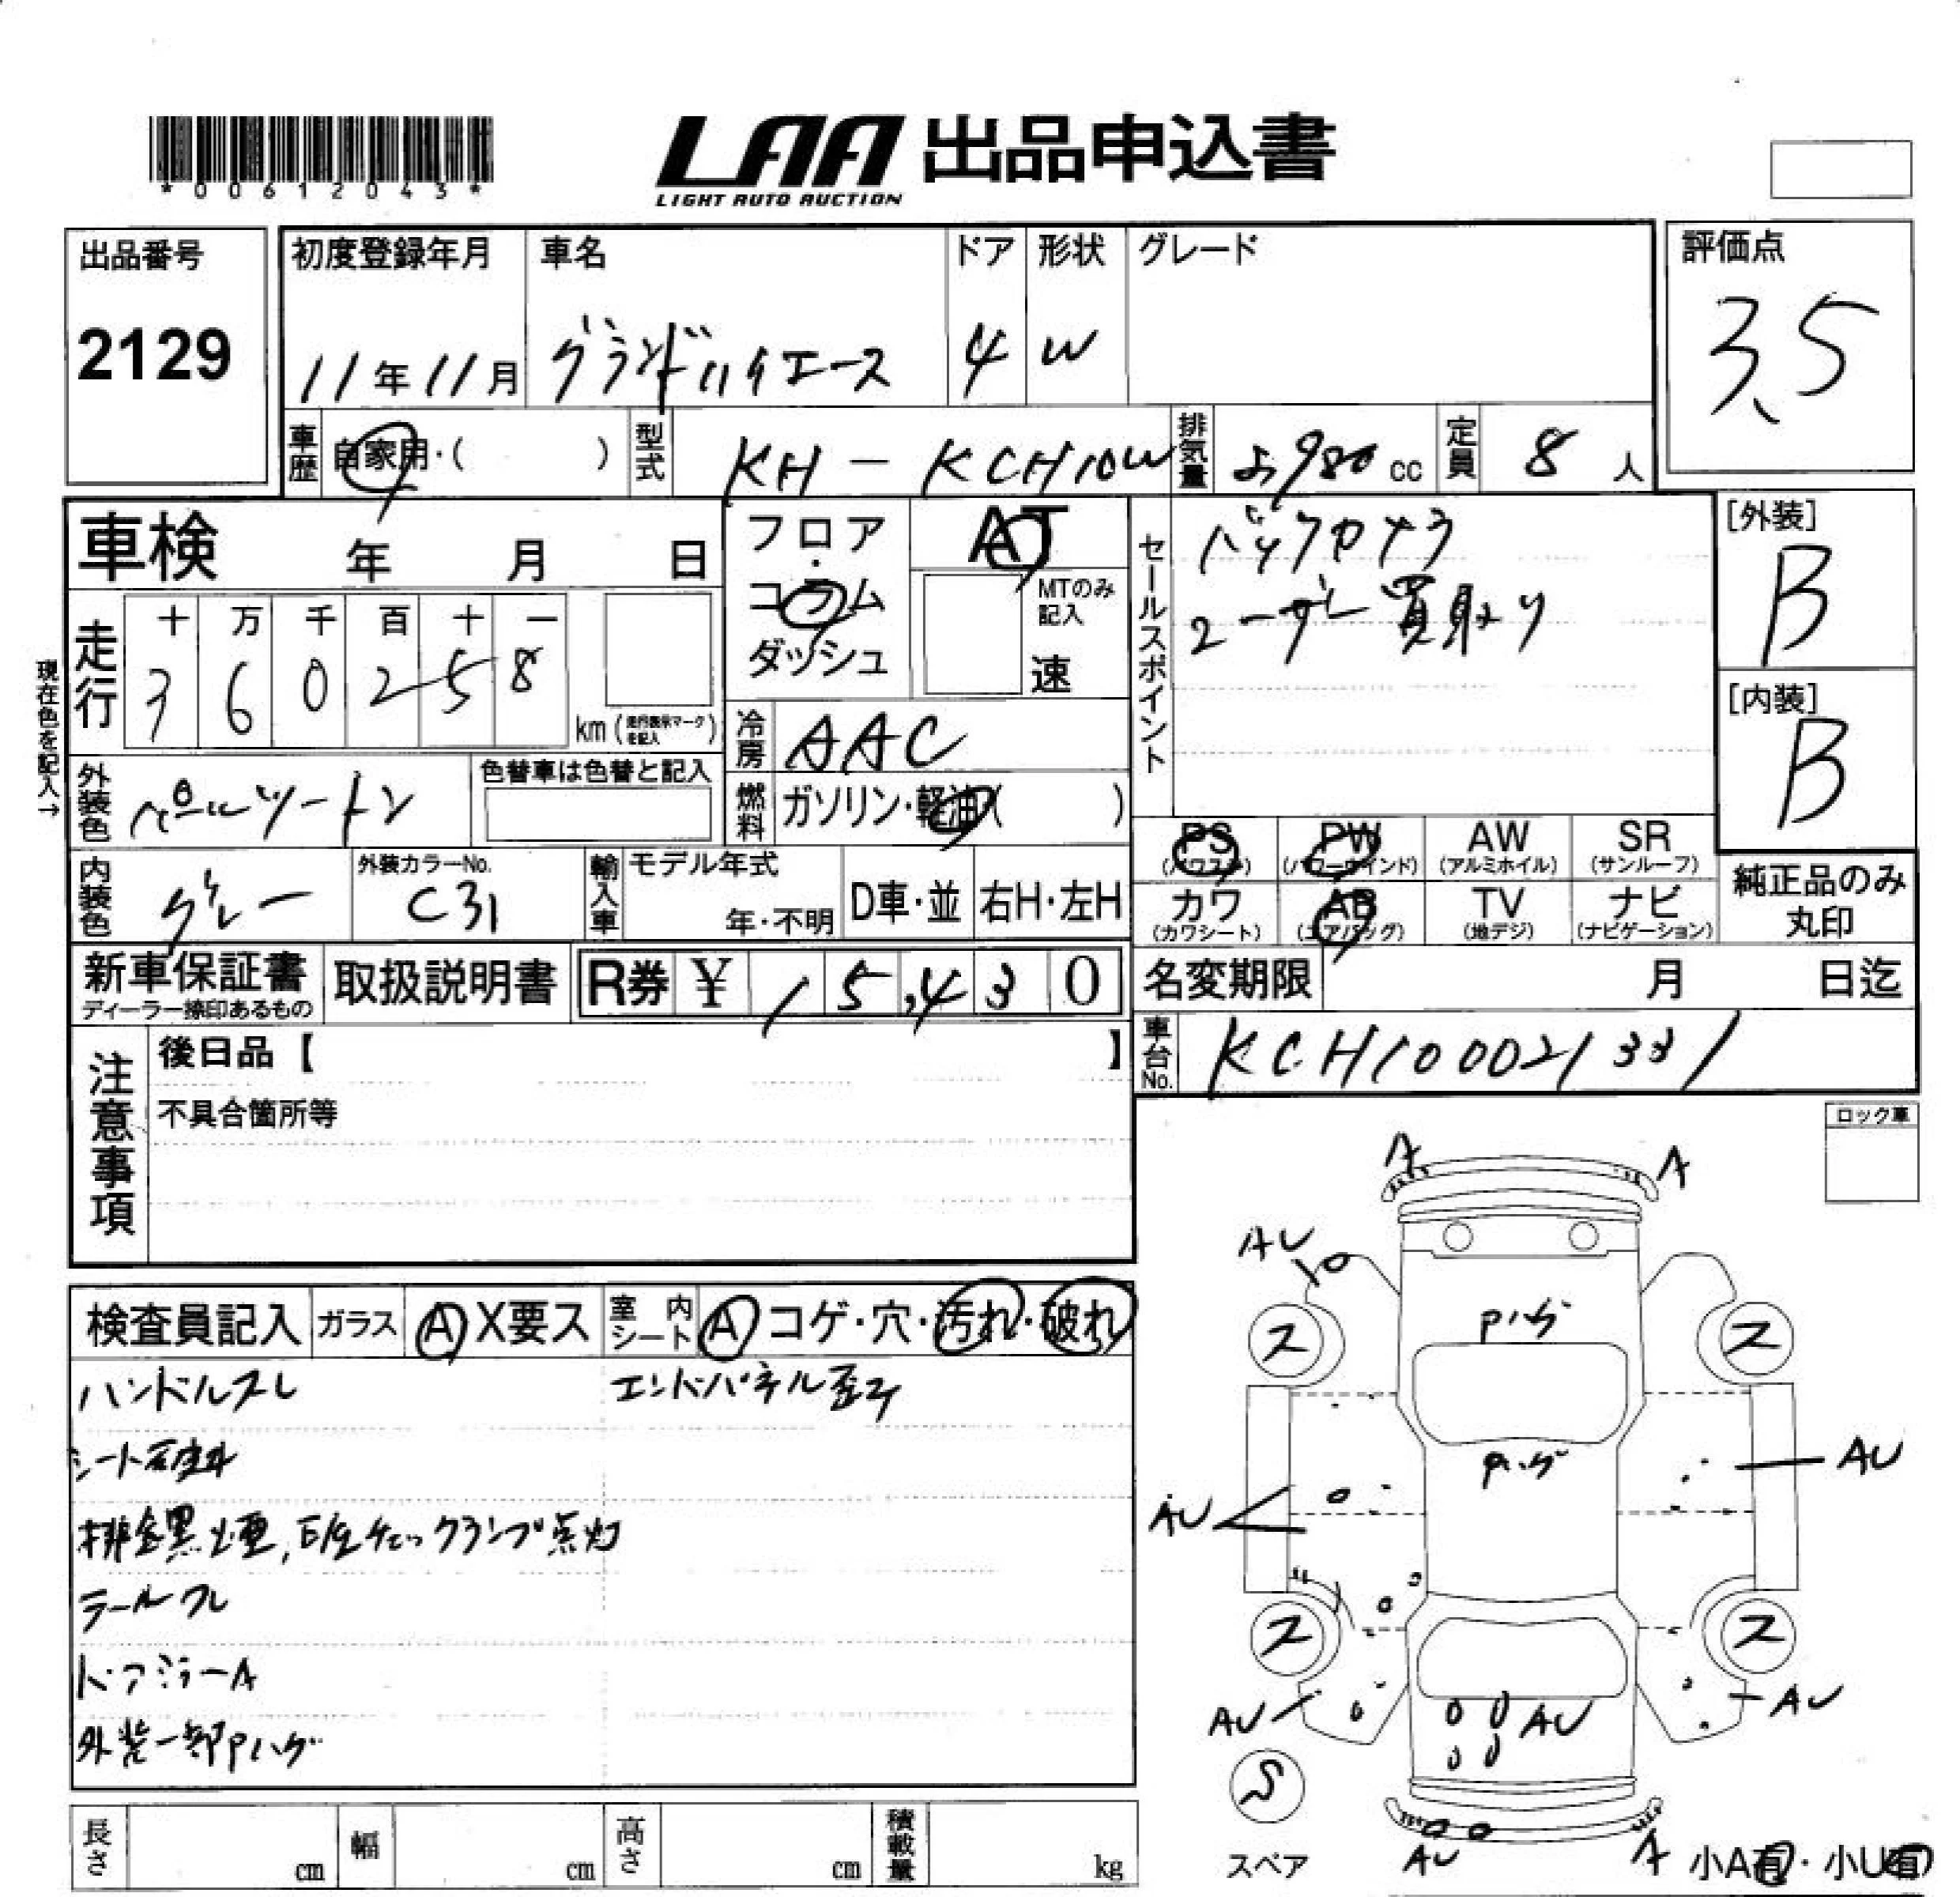 *00612043*
LAA 出品申込書
LIGHT AUTO AUCTION
出品番号
2129
初度登録年月
11年11月
車名
グランドハイエース
ドア
4
形状
W
グレード
評価点
3.5
車歴
自家用・( )
型式
KH-KCH10W
排気量
2980 cc
定員
8 人
車検 年 月 日
フロア・コラム
ダッシュ
AT
MTのみ記入
速
セールスポイント
バックカメラ
ユーザー買取り
[外装]
B
[内装]
B
現在色を記入→
走行
十 万 千 百 十 一
3 6 0 2 5 8
km (走行表示マークを記入)
冷房
AAC
燃料
ガソリン・軽油( )
外装色
パールツートン
色替車は色替と記入
内装色
グレー
外装カラーNo.
C31
輸入車
モデル年式
年・不明
D車・並
右H・左H
PS
(パワステ)
PW
(パワーウインド)
AW
(アルミホイル)
SR
(サンルーフ)
カワ
(カワシート)
AB
(エアバッグ)
TV
(地デジ)
ナビ
(ナビゲーション)
純正品のみ
丸印
新車保証書
ディーラー捺印あるもの
取扱説明書
R券 ¥ 15,430
名変期限 月 日迄
車台No.
KCH100021331
注意事項
後日品【 】
不具合箇所等
ロック車
検査員記入
ガラス
A X要ス
室内シート
A コゲ・穴・汚れ・破れ
ハンドルスレ
エンドパネル歪み
排気黒煙,
チェックランプ点灯
テールワレ
ドアミラーA
外装一部Pハゲ
A
A
AU
Pハゲ
ス
ス
Pハゲ
AU
AU
ス
ス
AU
AU
AU
S
スペア
AU
A
小A有・小U有
長さ cm
幅 cm
高さ cm
積載量 kg